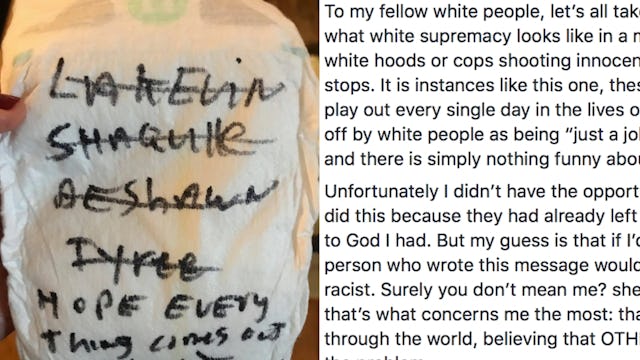 SHAQUIlle
DESHAWN
TYREE
HOPE EVERY
THING comes out
To my fellow white people, let's all tak
what white supremacy looks like in a m
white hoods or cops shooting innocen
stops. It is instances like this one, thes
play out every single day in the lives o
off by white people as being "just a jo
and there is simply nothing funny abou
Unfortunately I didn't have the opport
did this because they had already left
to God I had. But my guess is that if I'd
person who wrote this message would
racist. Surely you don't mean me? she
that's what concerns me the most: tha
through the world, believing that OTH
the problem